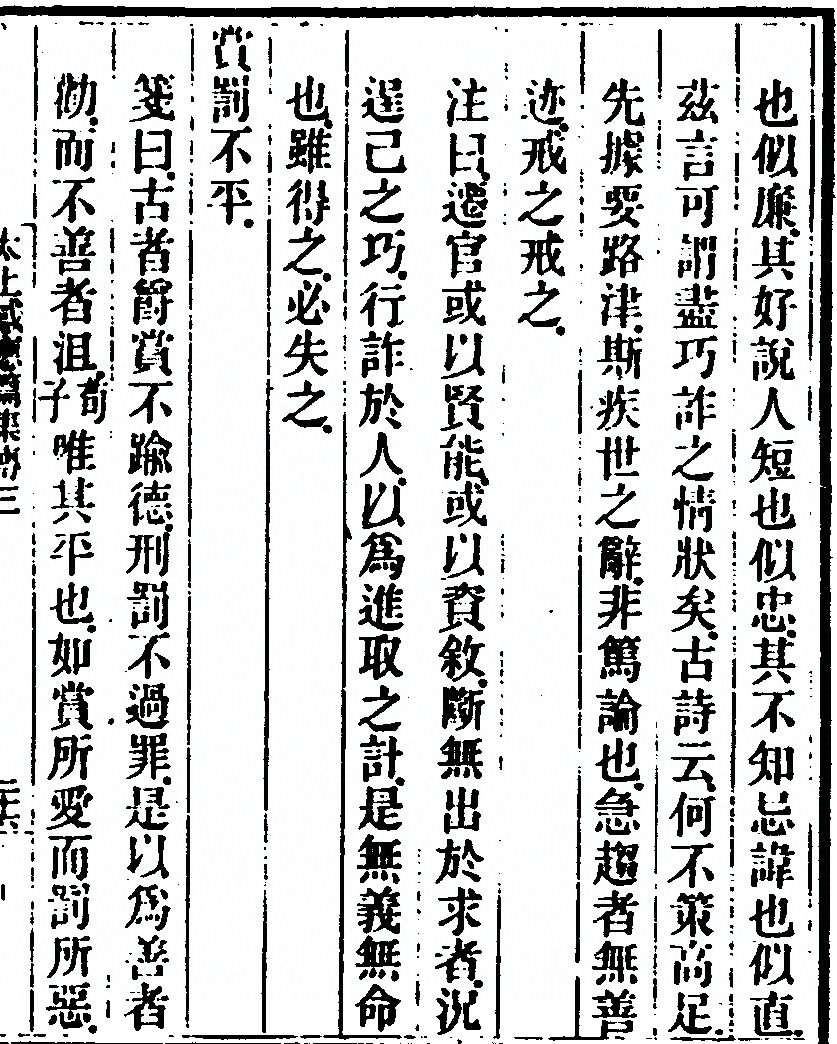 也似廉.其好說人短也似忠.其不知忌諱也似直.
茲言可謂盡巧詐之情狀矣.古詩云.何不策高足.
先據要路津.斯疾世之辭.非篤論也.急趨者無善
迹.戒之戒之.
注曰.遷官或以賢能.或以資敘.斷無出於求者.況
逞己之巧.行詐於人.以爲進取之計.是無義無命
也.雖得之.必失之.
賞罰不平.
箋曰.古者爵賞不踰德.刑罰不過罪.是以爲善者
勸.而不善者沮.荀子唯其平也.如賞所愛而罰所惡.
太上感應篇集傳三